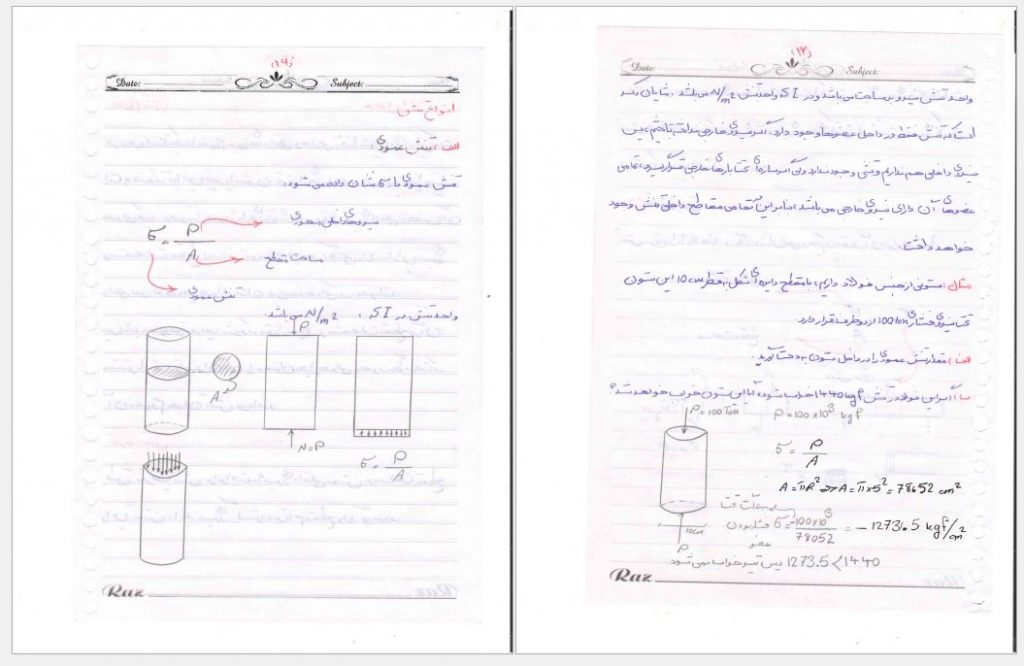 Date: Subject:
انواع تنش
الف) تنش عمودی:
تنش عمودی با σ نشان داده می شود:
σ = P/A
نیروی داخلی محوری
مساحت مقطع
تنش عمودی
واحد تنش در SI، N/m² می باشد.
P
A
N=P
σ = P/A
Raz
(۱۲)
Date: Subject:
واحد تنش نیرو بر مساحت می باشد و در SI واحد تنش N/m² می باشد. شایان ذکر
است که تنش فقط در داخل عضوها وجود دارد. اگر نیروی خارجی نداشته باشیم، پس
نیروی داخلی هم نداریم و تنشی وجود ندارد ولی اگر سازه ای تحت بارهای خارجی قرار گیرد، تمامی
عضوهای آن دارای نیروی خارجی می باشد، بنابراین در تمامی مقاطع داخلی تنش وجود
خواهد داشت.
مثال: ستونی از جنس فولاد داریم، با مقطع دایره ای شکل به قطر 10cm این ستون
تحت نیروی فشاری 100 ton از دو طرف قرار دارد
الف) مقدار تنش عمودی را در داخل ستون به دست آورید.
ب) اگر این فولاد در تنش 1440 kgf خراب شود، آیا این ستون خراب خواهد شد؟
P=100 Ton
P=100×10³ kgf
σ = P/A
A=πR² ⇒ A=π×5²=78.52 cm²
σ = -100×10³/78052 = -1273.5 kgf/cm²
فشاری بودن
عضو
10cm
P
1273.5<1440 پس تیر خراب نمی شود
Raz